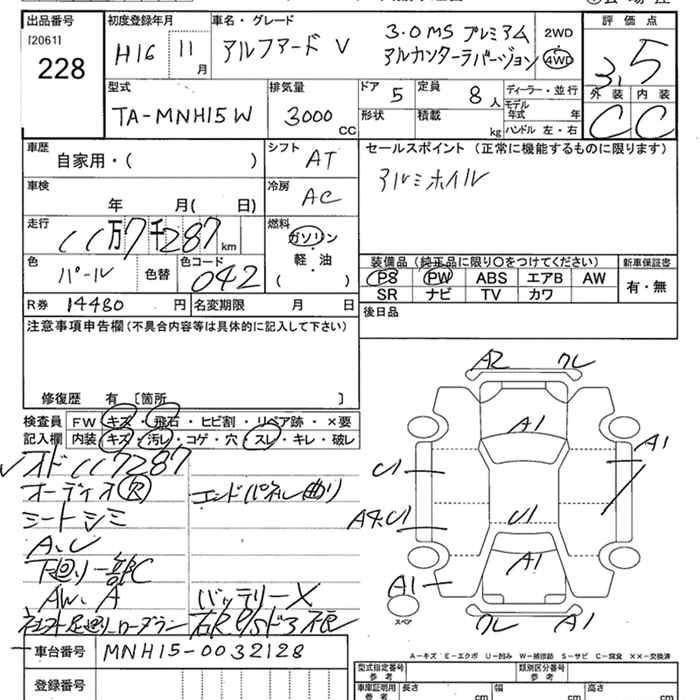 出品番号 初度登録年月 車名・グレード 評価点
[2061]
228
H16 11月 アルファード V 3.0 MS プレミアム
アルカンターラバージョン 2WD 4WD 3.5
型式 排気量 ドア 5 定員 8人 ディーラー・並行 外装 内装
TA-MNH15W 3000 CC 形状 積載 kg モデル年式 年 C C
ハンドル 左・右
車歴 シフト セールスポイント (正常に機能するものに限ります)
自家用・( ) AT アルミホイル
車検 年 月( 日) 冷房 AC
走行 11万7千287km 燃料 ガソリン・軽油・( )
色 パール 色替 色コード 042
装備品 (純正品に限り○をつけてください) 新車保証書
PS PW ABS エアB AW 有・無
SR ナビ TV カワ
R券 14480 円 名変期限 月 日 後日品
注意事項申告欄 (不具合内容等は具体的に記入して下さい)
修復歴 有 〔箇所 〕
検査員 FW キズ・飛石・ヒビ割・リペア跡・×要
記入欄 内装 キズ・汚レ・コゲ・穴・スレ・キレ・破レ
オド117287
オーディオ欠 エンドパネル曲り
シートシミ
A、U
下廻り一部C
AW、A バッテリーX
足廻りローダウン
車台番号 MNH15-0032128
登録番号
A2 ワレ
A1
A1
U1
A4.U1 U1
A1
A1
スペア
ワレ A1
A-キズ E-エクボ U-凹み W-補修跡 S-サビ C-腐食 ××-交換済
型式指定番号 参考 類別区分番号 参考
車庫証明用 参考 長さ cm 幅 cm 高さ cm